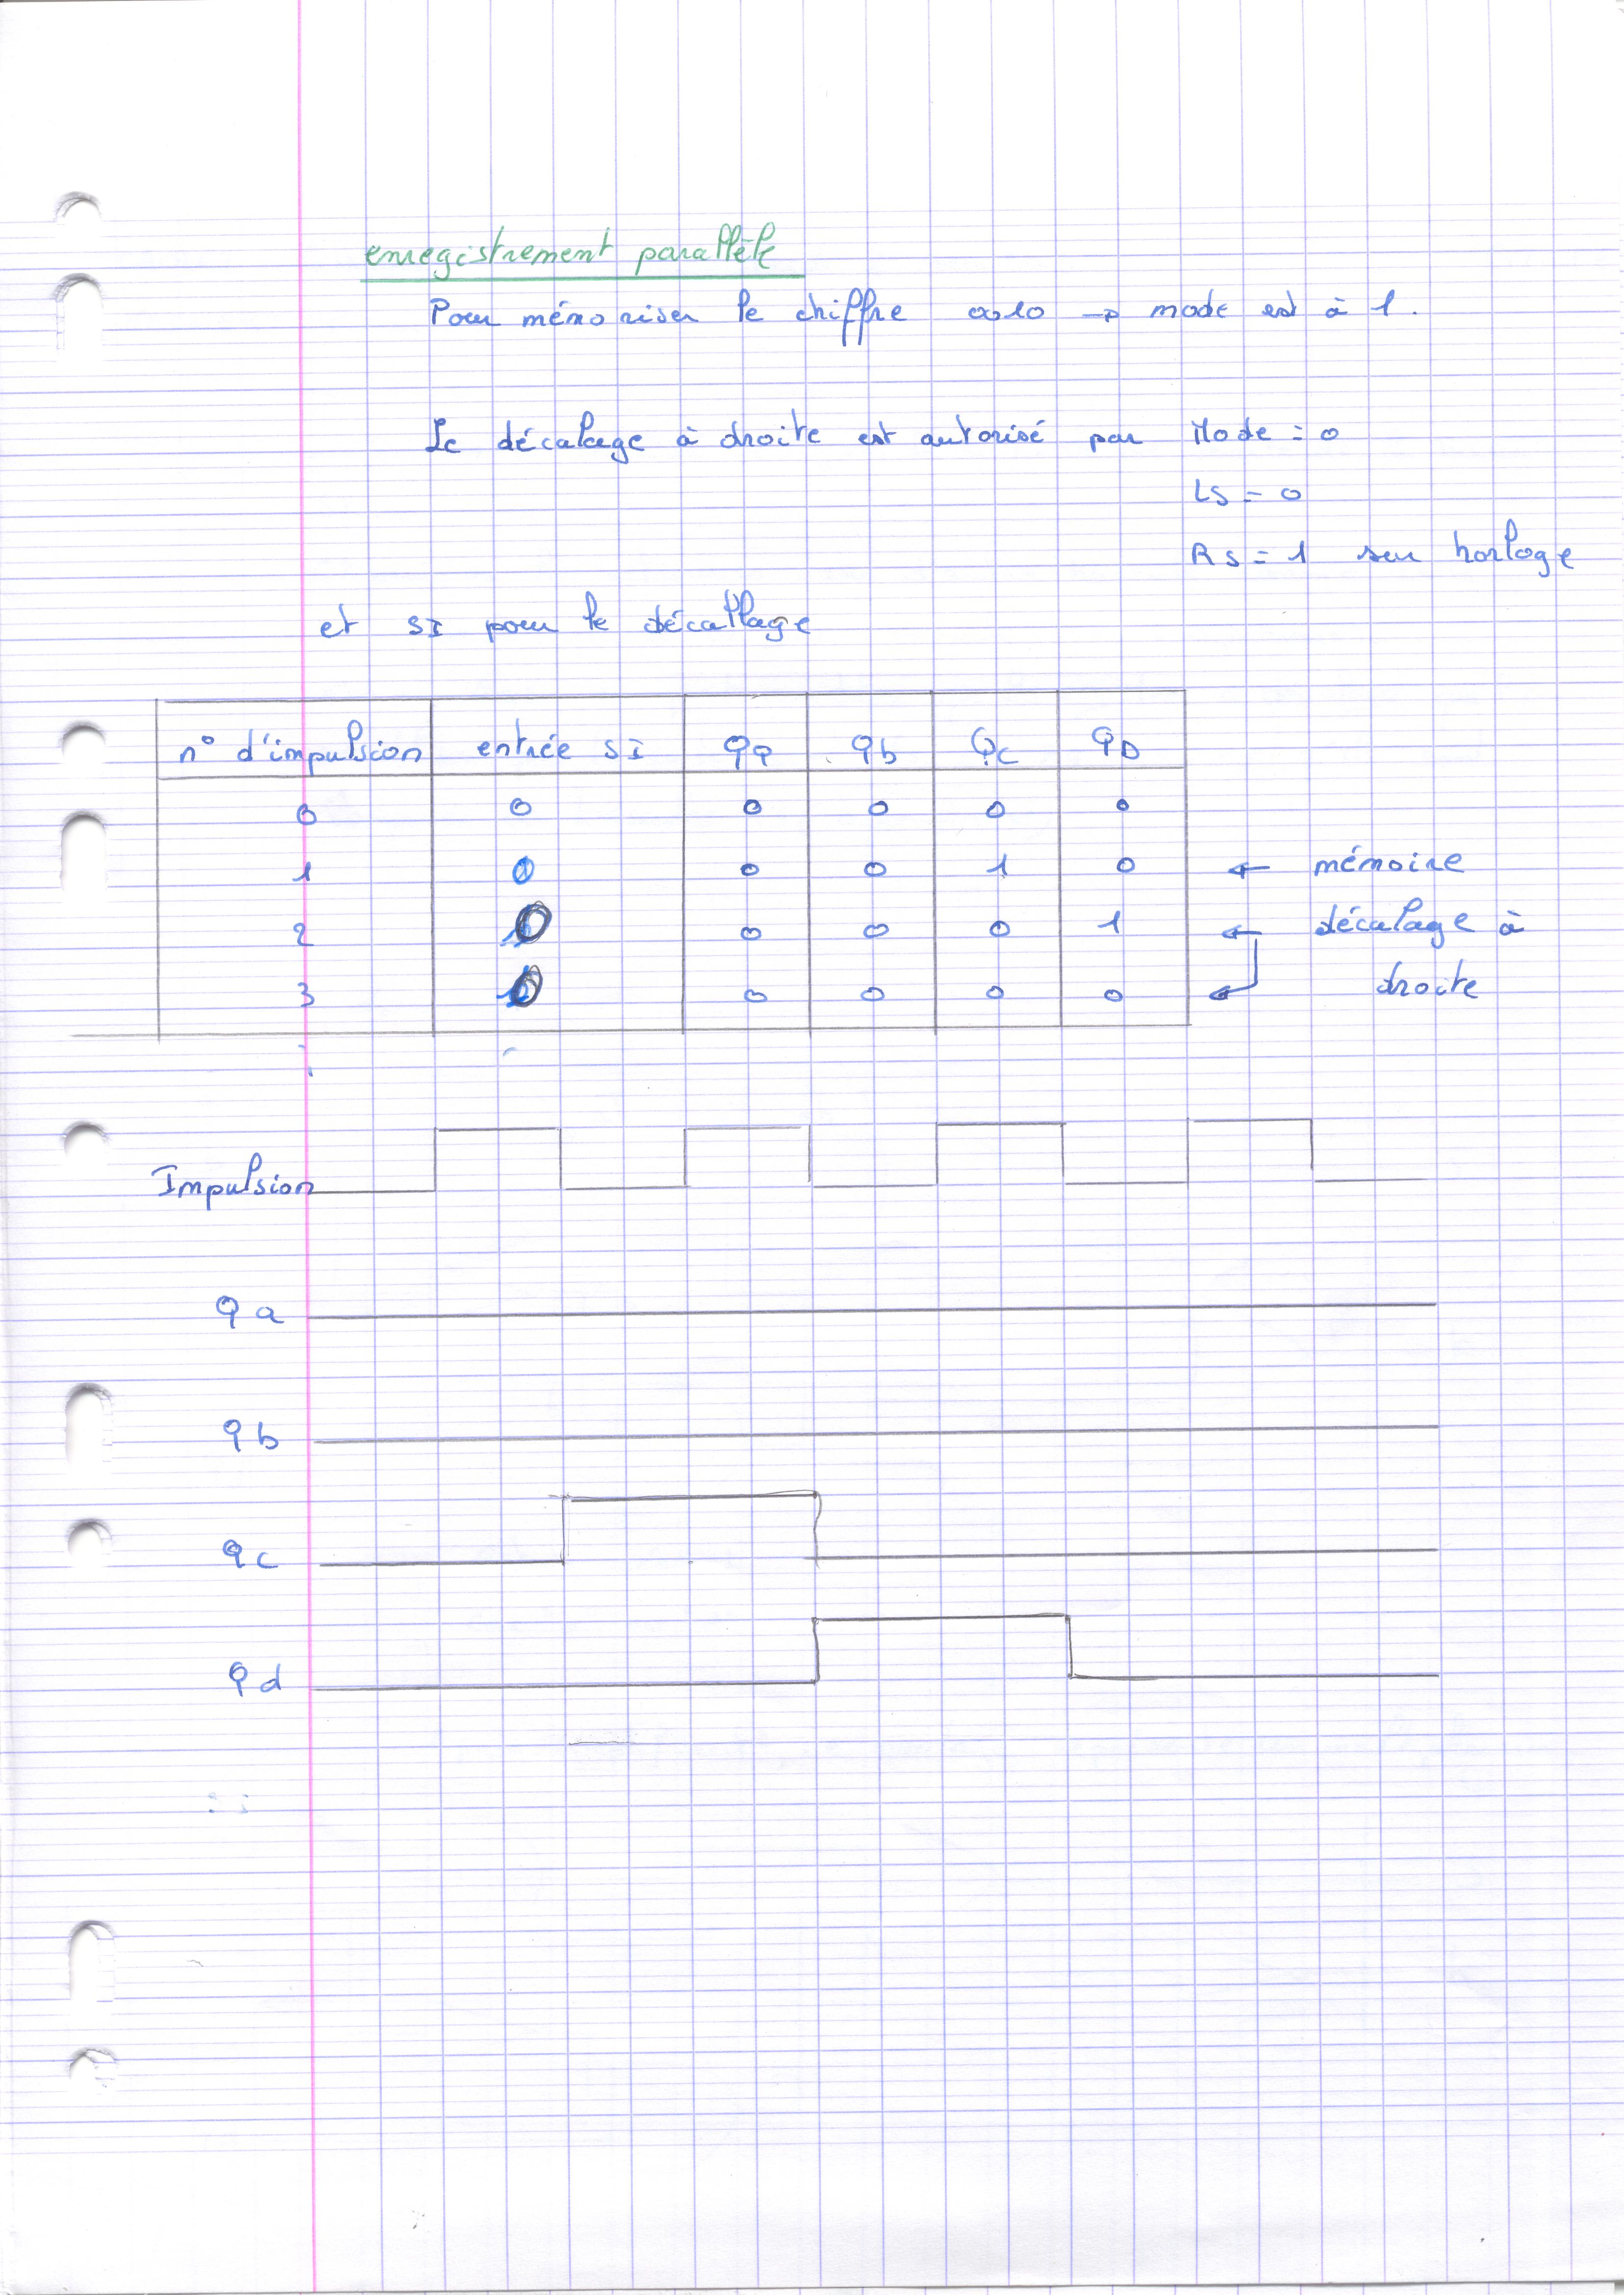 enregistrement parallèle
Pour mémoriser le chiffre 0010 → mode est à 1.
Le décalage à droite est autorisé par Mode = 0
LS = 0
RS = 1 sur horloge
et SI pour le décallage
n° d'impulsion entrée SI Qa Qb Qc QD
0 0 0 0 0 0
1 0 0 0 1 0 ← mémoire
2 0 0 0 0 1 ← décalage à
3 0 0 0 0 0 ← droite
Impulsion
Qa
Qb
Qc
Qd